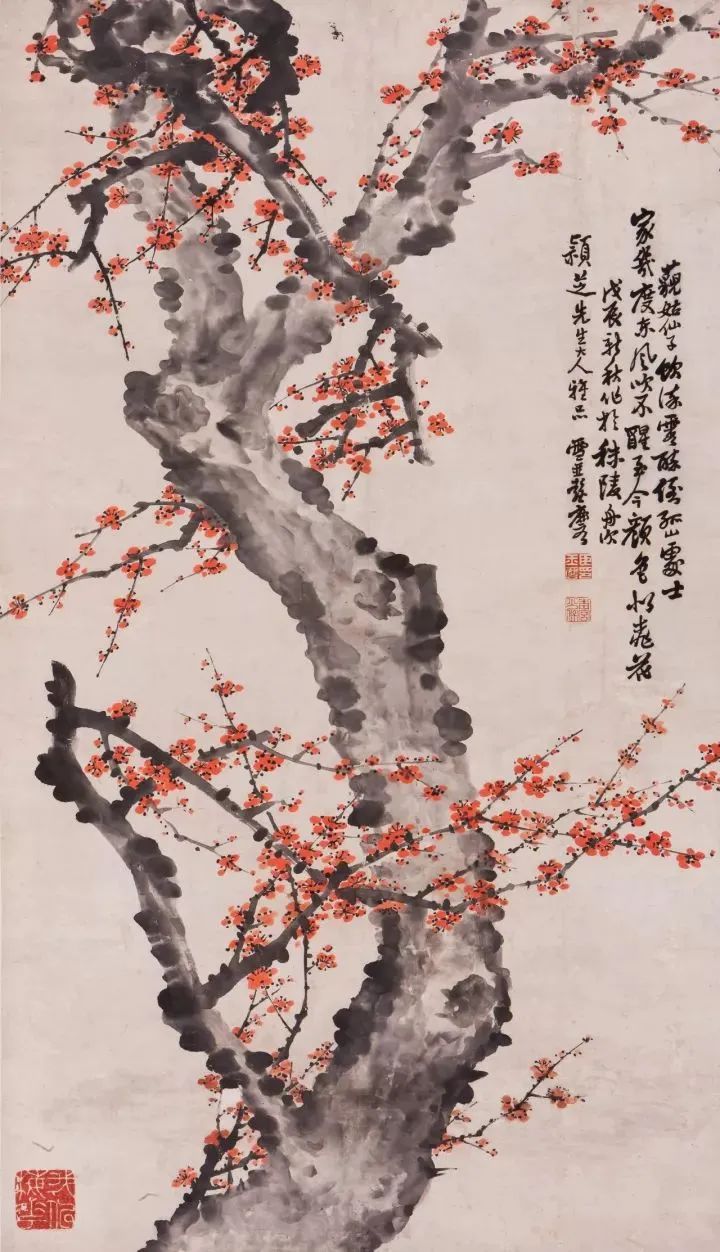 藐姑仙子飲流霞醉倚孤山處士
家幾度東風吹不醒至今顏色似桃花
戊辰新秋作於秣陵舟次
穎芝先生大人雅正 雪琴彭玉麐